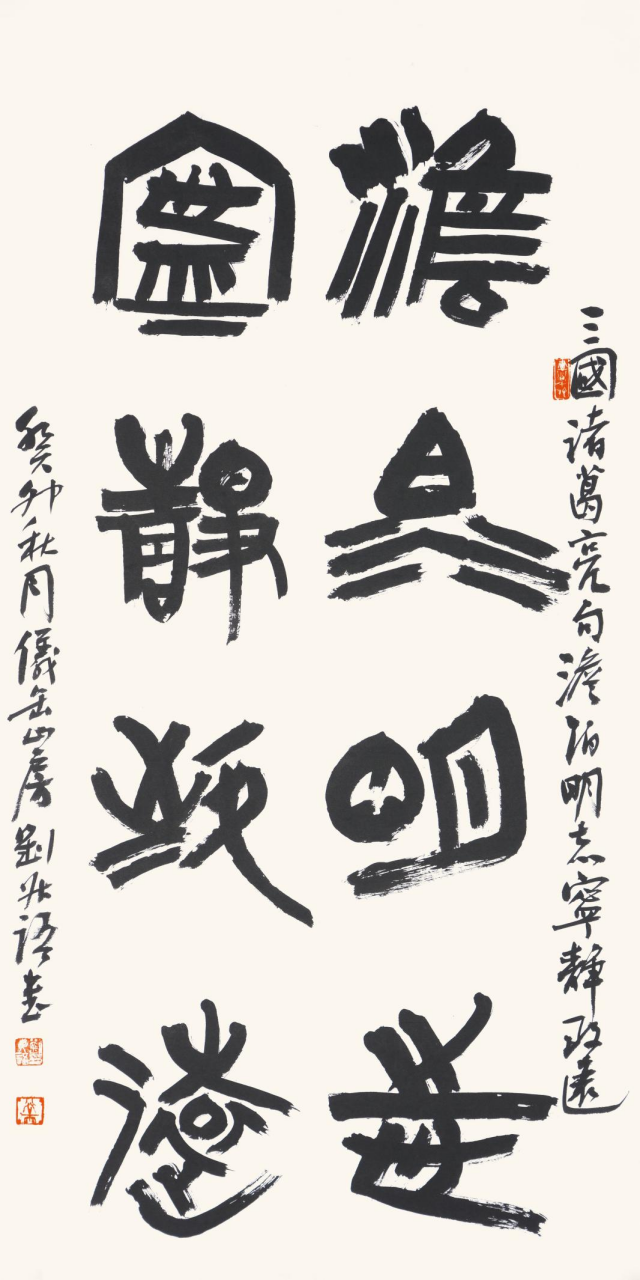 三國諸葛亮句澹泊明志寧靜致遠
澹泊明志
寧靜致遠
癸卯秋月儀缶山房劉語書